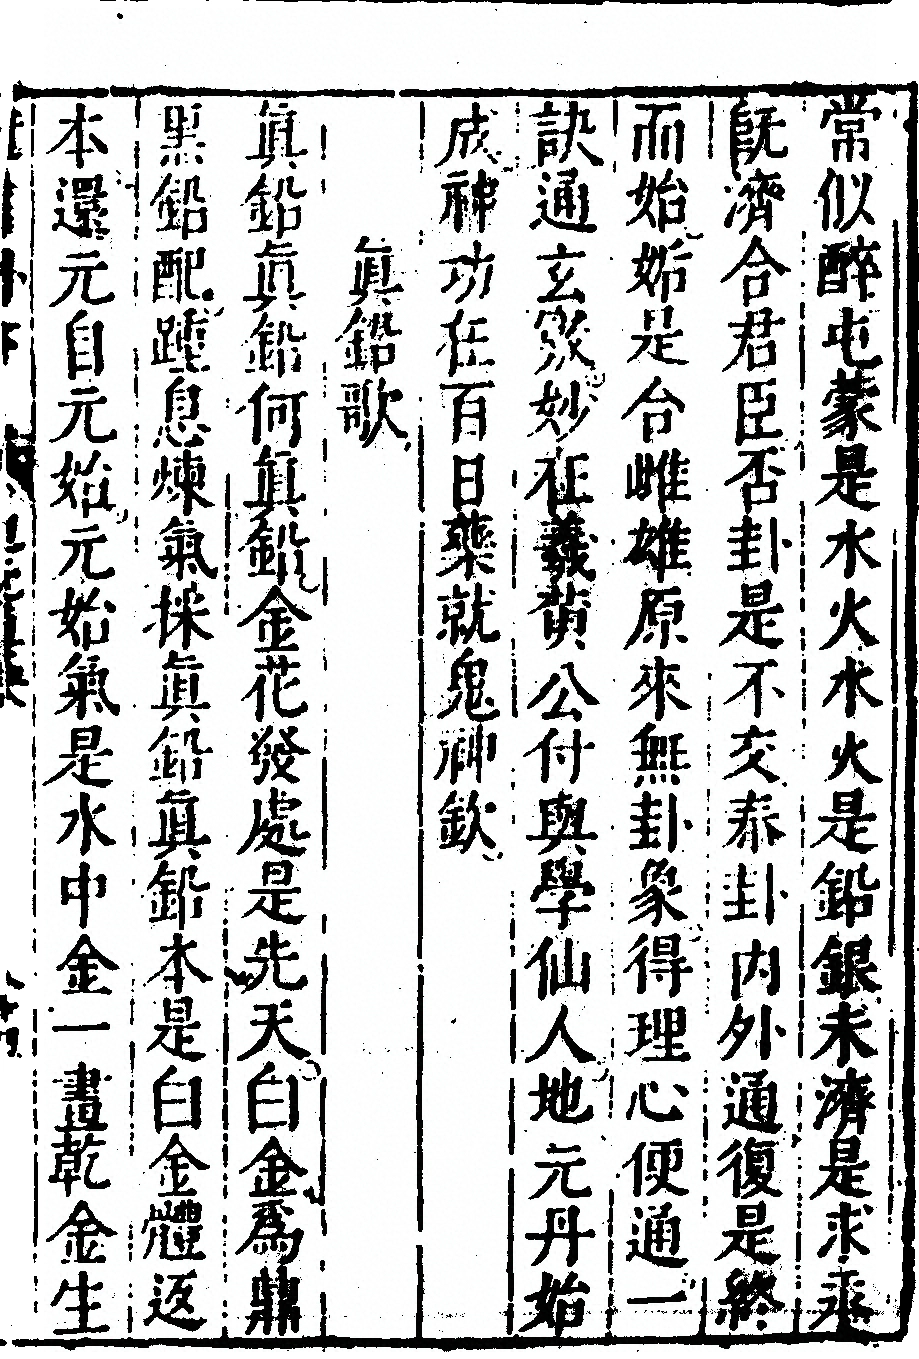 常似醉屯蒙是水火水火是鉛銀未濟是求乘
既濟合君臣否卦是不交泰卦內外通復是終
而始姤是合雌雄原來無卦象得理心便通一
訣通玄衆妙在羲黄公付與學仙人地元丹始
成神功在百日藥就鬼神欽
眞鉛歌
眞鉛眞鉛何眞鉛金花發處是先天白金爲鼎
黑鉛配踵息煉氣採眞鉛眞鉛本是白金體返
本還元自元始元始氣是水中金一畫乾金生